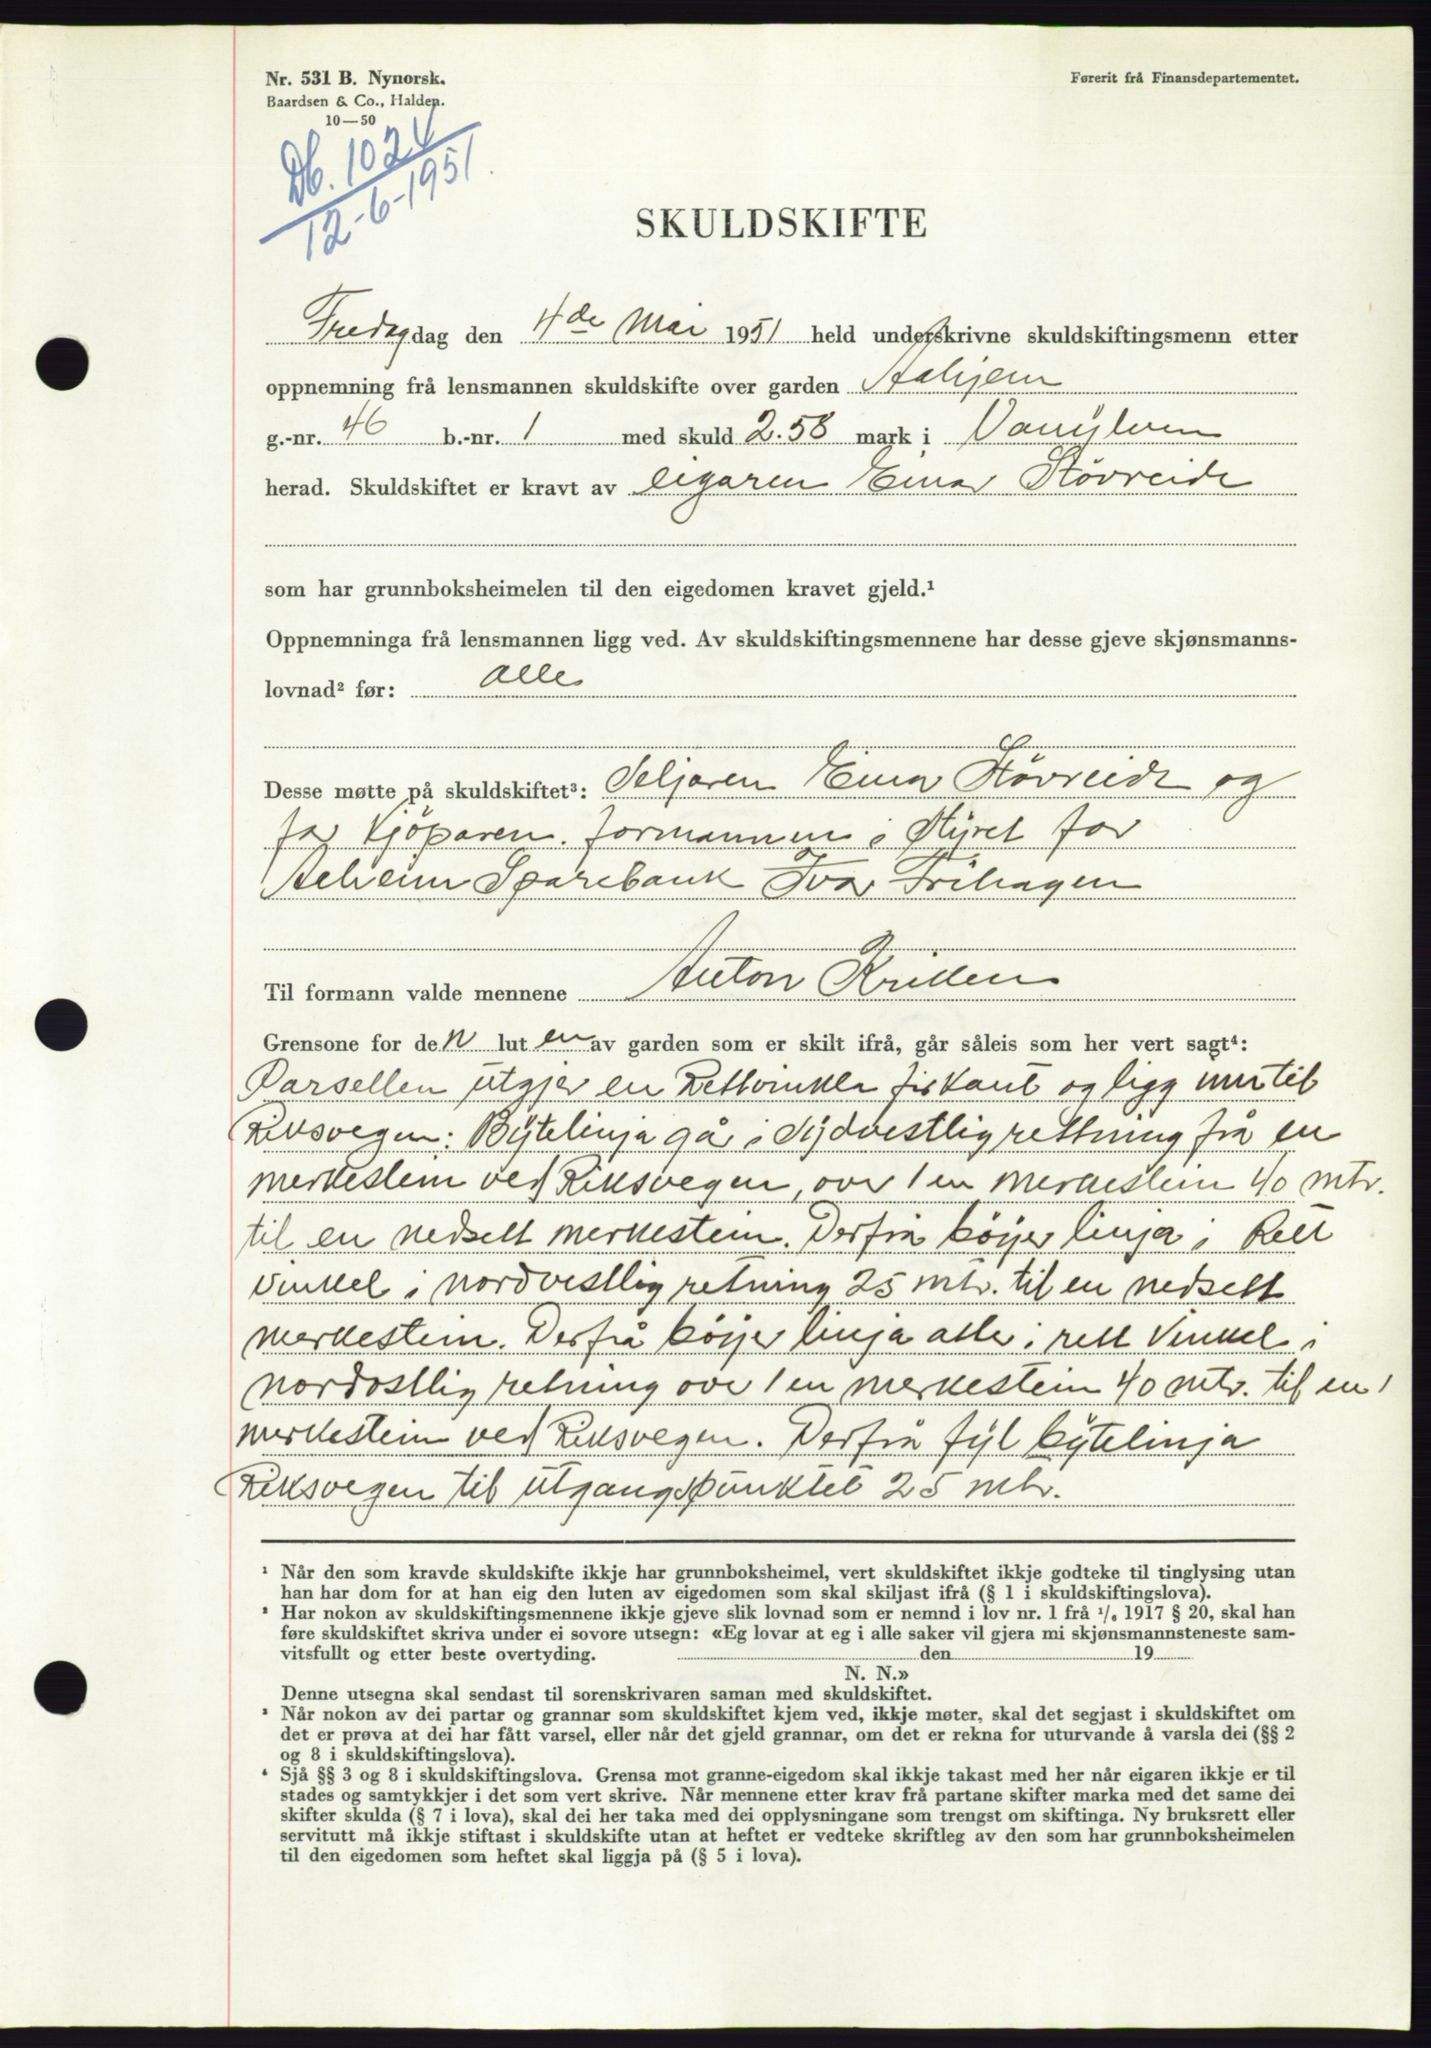 Nr. 531 B. Nynorsk.
Baardsen & Co., Halden.
10—50
Førerit frå Finansdepartementet.
Db. 1024
12-6-1951.
SKULDSKIFTE
Fredag dag den 4de Mai 1951 held underskrivne skuldskiftingsmenn etter
oppnemning frå lensmannen skuldskifte over garden Aahjem
g.-nr. 46 b.-nr. 1 med skuld 2.58 mark i Vanylven
herad. Skuldskiftet er kravt av eigaren Einar Stövreide
som har grunnboksheimelen til den eigedomen kravet gjeld.¹
Oppnemninga frå lensmannen ligg ved. Av skuldskiftingsmennene har desse gjeve skjønsmanns-
lovnad² før: alle
Desse møtte på skuldskiftet³: Seljaren Einar Stövreide og
for kjöparen. formannen i Styret for
Aaheim Sparebank Ivar Tråhagen
Til formann valde mennene Anton Krillen
Grensone for den luten av garden som er skilt ifrå, går såleis som her vert sagt⁴:
Parsellen utgjer en Rettvinkla firkant og ligg inn til
Riksvegen: Bytelinja går i Sydvestlig rettning frå en
merkestein ved Riksvegen, over 1 en merkestein 40 mtr.
til en nedsett merkestein. Derfrå böyer linja i Rett
vinkel i nordvestlig retning 25 mtr. til en nedsett
merkestein. Derfrå böyer linja atter i rett Vinkel i
nordostlig retning over 1 en merkestein 40 mtr. til en
merkestein ved Riksvegen. Derfrå fyl bytelinja
Riksvegen til utgangspunktet 25 mtr.
¹ Når den som kravde skuldskifte ikkje har grunnboksheimel, vert skuldskiftet ikkje godteke til tinglysing utan
han har dom for at han eig den luten av eigedomen som skal skiljast ifrå (§ 1 i skuldskiftingslova).
² Har nokon av skuldskiftingsmennene ikkje gjeve slik lovnad som er nemnd i lov nr. 1 frå ¹/₆ 1917 § 20, skal han
føre skuldskiftet skriva under ei sovore utsegn: «Eg lovar at eg i alle saker vil gjera mi skjønsmannsteneste sam-
vitsfullt og etter beste overtyding. den 19
N. N.»
Denne utsegna skal sendast til sorenskrivaren saman med skuldskiftet.
³ Når nokon av dei partar og grannar som skuldskiftet kjem ved, ikkje møter, skal det segjast i skuldskiftet om
det er prøva at dei har fått varsel, eller når det gjeld grannar, om det er rekna for uturvande å varsla dei (§§ 2
og 8 i skuldskiftingslova).
⁴ Sjå §§ 3 og 8 i skuldskiftingslova. Grensa mot granne-eigedom skal ikkje takast med her når eigaren ikkje er til
stades og samtykkjer i det som vert skrive. Når mennene etter krav frå partane skifter marka med det same dei
skifter skulda (§ 7 i lova), skal dei her taka med dei opplysningane som trengst om skiftinga. Ny bruksrett eller
servitutt må ikkje stiftast i skuldskifte utan at heftet er vedteke skriftleg av den som har grunnboksheimelen
til den eigedomen som heftet skal liggja på (§ 5 i lova).